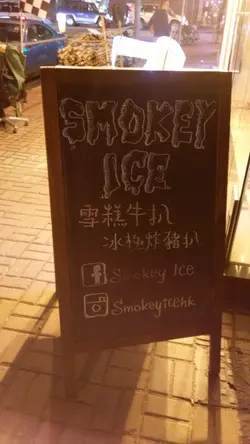 SMOKEY
ICE
雪糕牛扒
冰極炸豬扒
Smokey Ice
Smokeyicehk